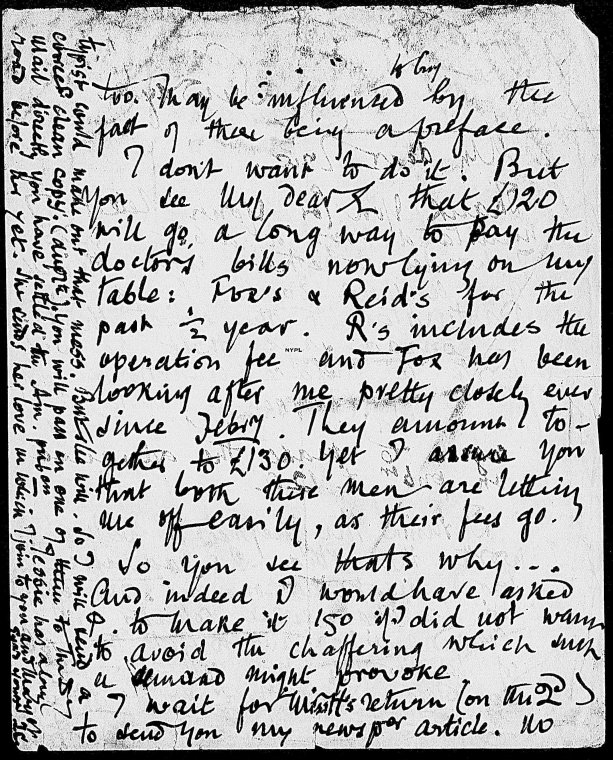 to buy
too. May be influenced by the
fact of there being a preface.
I don't want to do it. But
you see my dear E that £120
will go a long way to pay the
doctors' bills now lying on my
table: Fox's & Reid's for the
past ½ year. R's includes the
operation fee and Fox has been
NYPL
looking after me pretty closely ever
since Febry. They amount to-
gether to £130. Yet I assure you
that both these men are letting
me off easily, as their fees go.
So you see thats why...
And indeed I would have asked
to make it 150 if I did not want
to avoid the chaffering which such
a demand might provoke.
I wait for Miss return (on the 2d)
to send you my newsper article. No
typist could make out that mess. But she will. So I will send a
clean copy. (duplte) you will pass on one of them to the Dly
Mail directly you have settled the Am. pub on. Jessie has alrdy
read before her yet. She sends her love in which I join to you and Mary